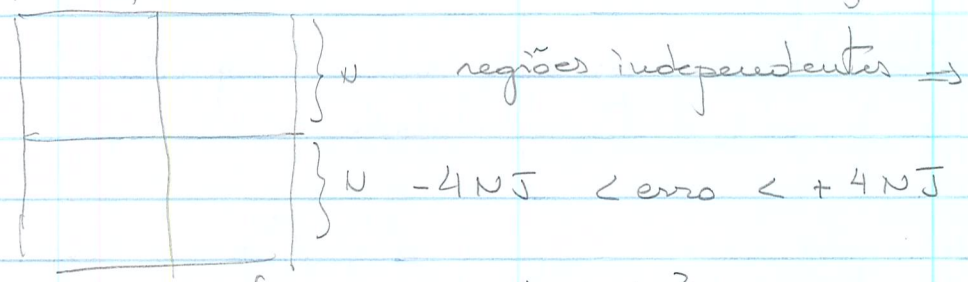 } N regiões independentes ⇒
} N -4NJ < erro < +4NJ